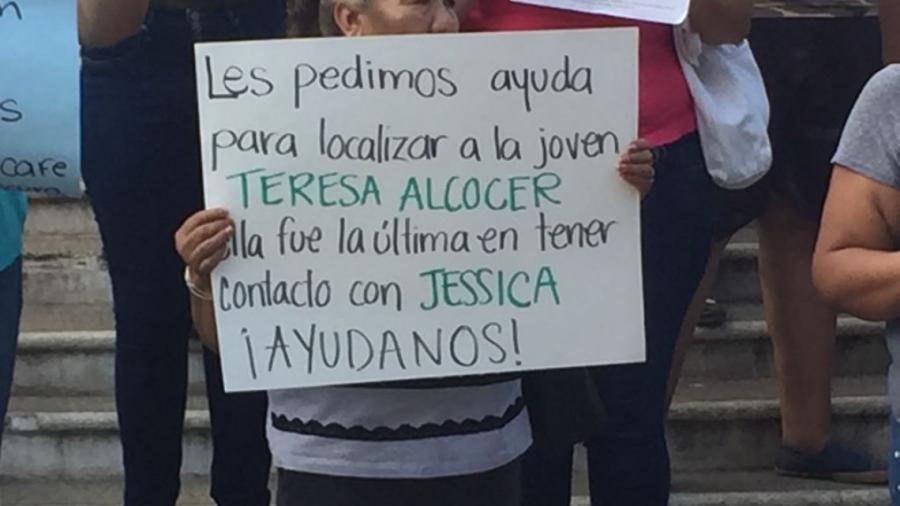 Les pedimos ayuda
para localizar a la joven
TERESA ALCOCER
ella fue la última en tener
contacto con JESSICA
¡AYUDANOS!
care